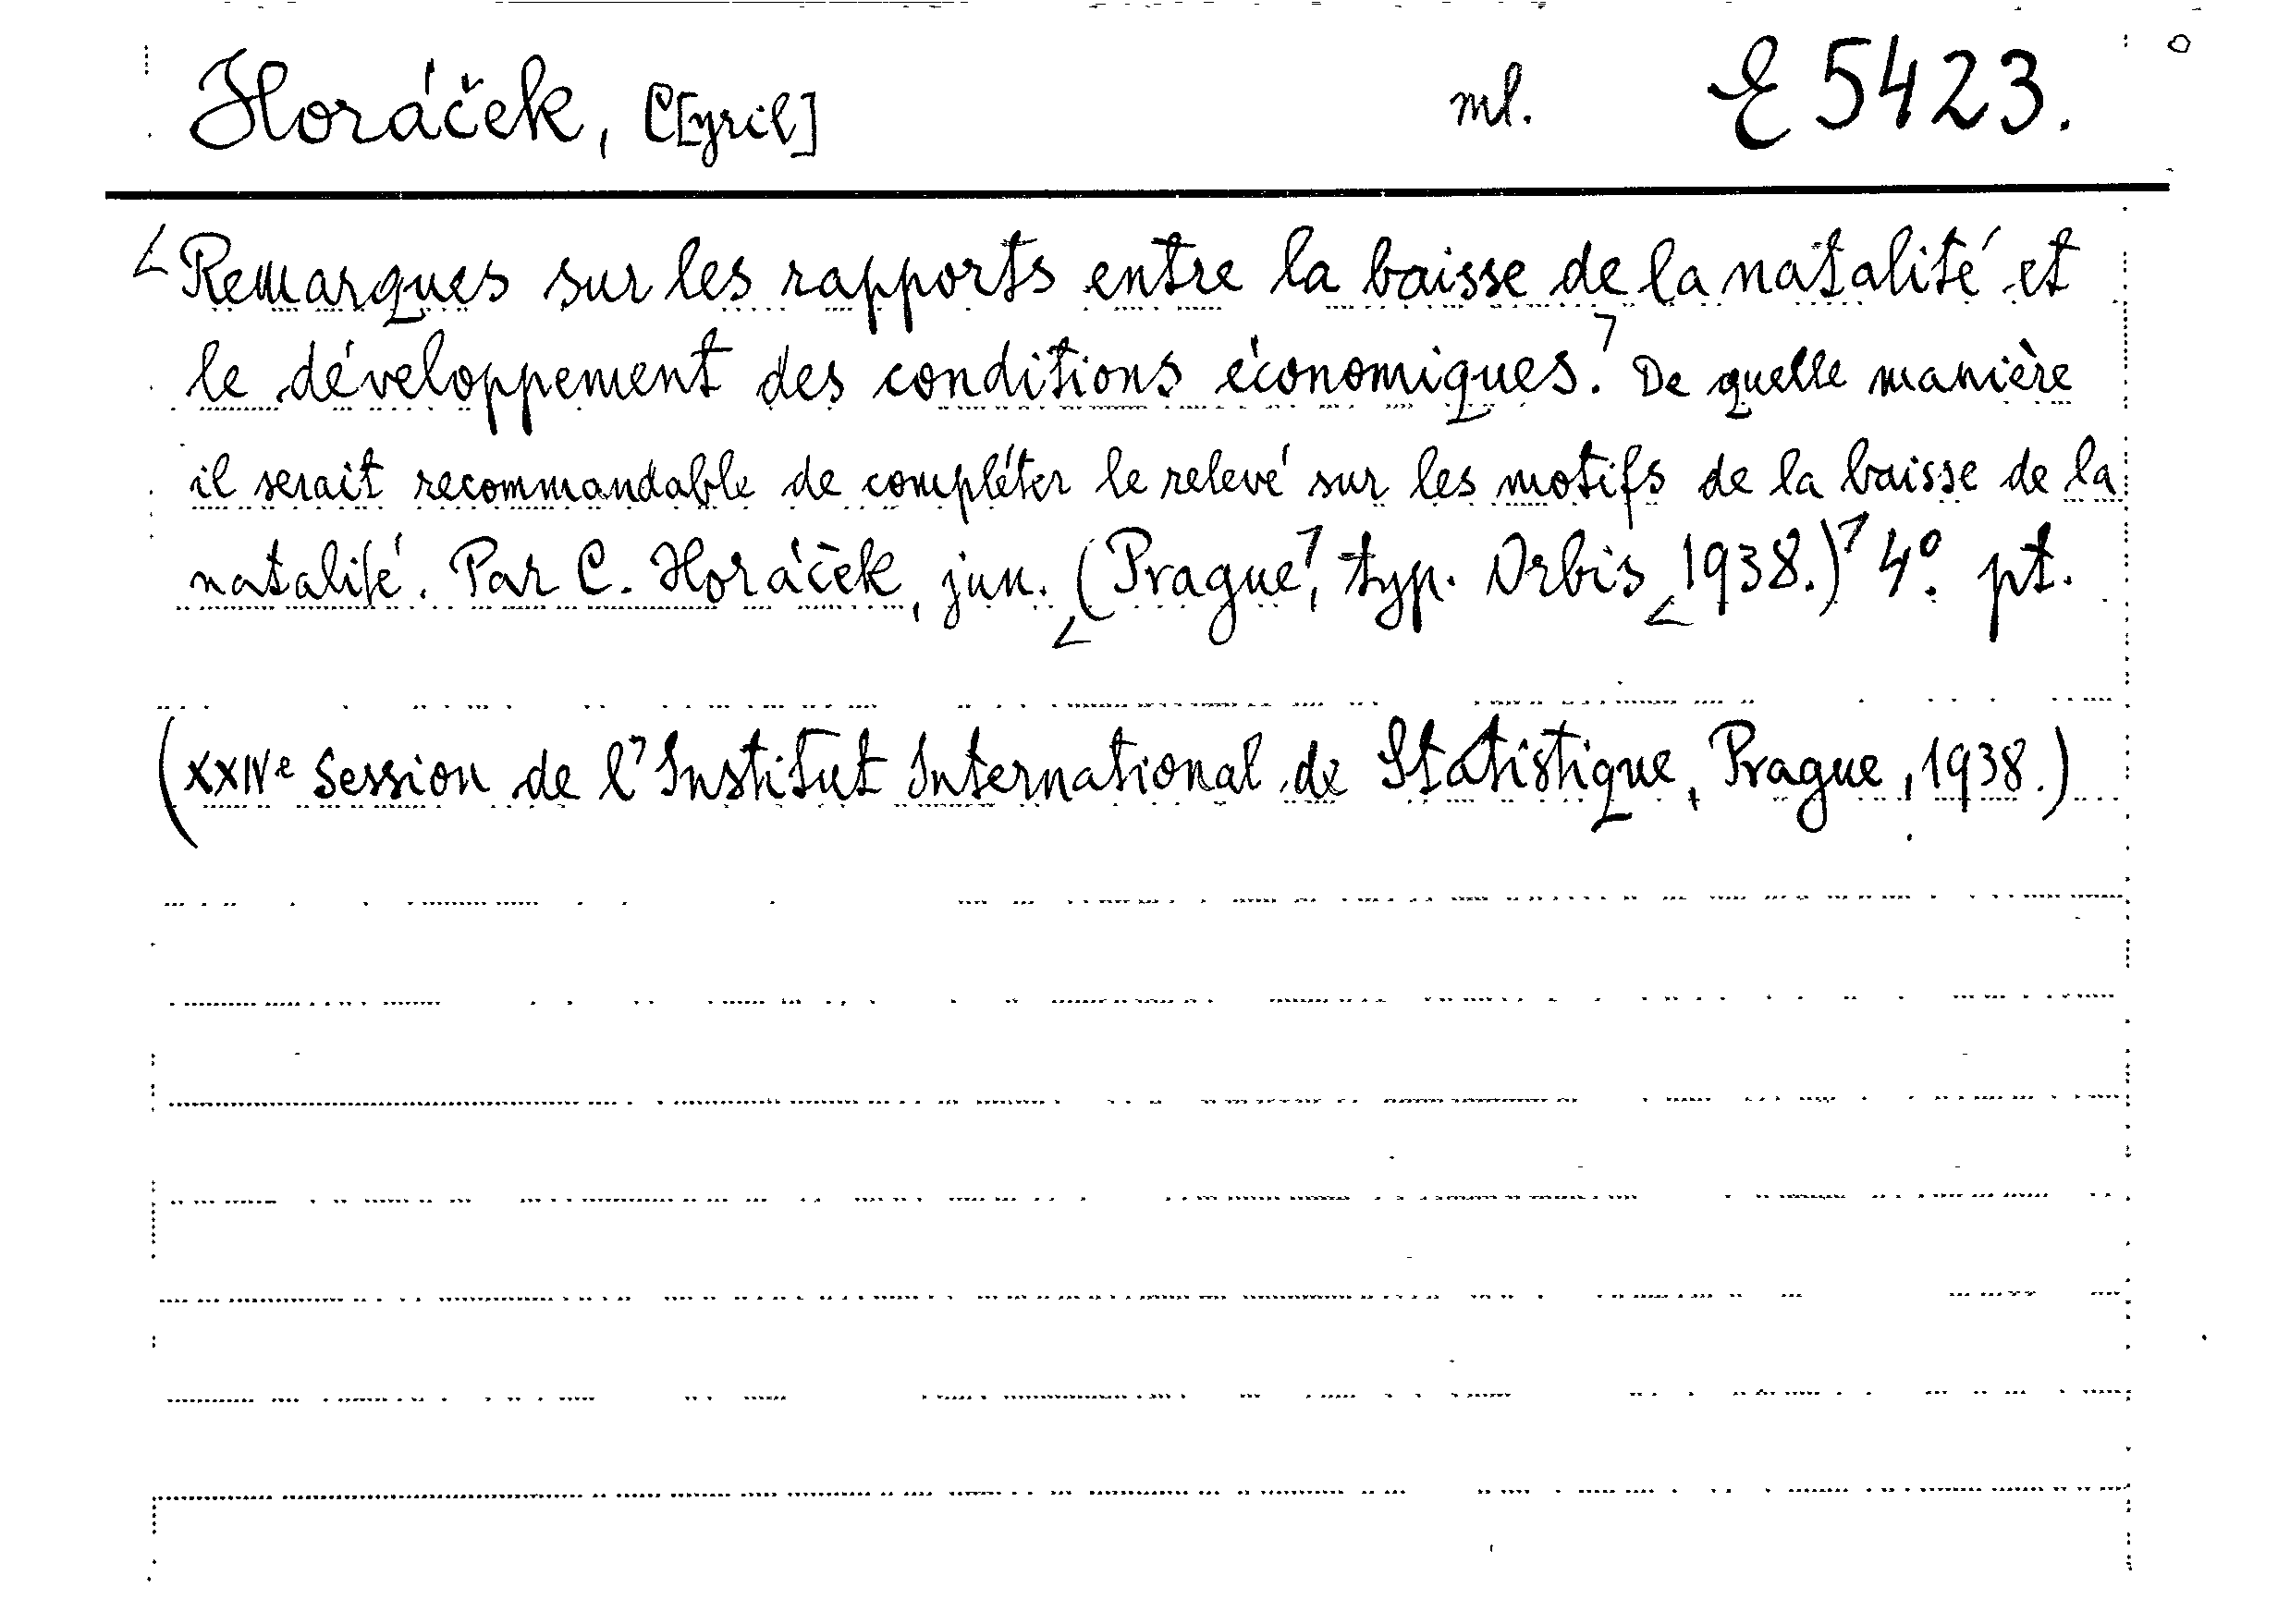 Horáček, C[yril] ml. E 5423.
Remarques sur les rapports entre la baisse de la natalité et
le développement des conditions économiques. De quelle manière
il serait recommandable de compléter le relevé sur les motifs de la baisse de la
natalité. Par C. Horáček, jun. (Prague, typ. Orbis 1938.) 4° pt.
(XXIVe Session de l'Institut International de Statistique, Prague, 1938.)